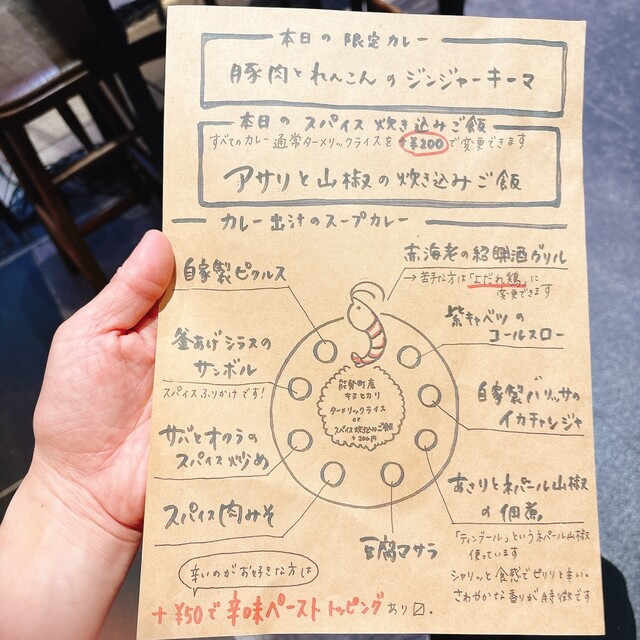 本日の 限定カレー
豚肉とれんこんの ジンジャーキーマ
本日の スパイス 炊き込みご飯
すべてのカレー 通常ターメリックライスを +¥200 で変更できます
アサリと山椒の炊き込みご飯
カレー出汁のスープカレー
赤海老の紹興酒グリル
→ 苦手な方は「よだれ鶏」に
変更できます
自家製ピクルス
紫キャベツの
コールスロー
釜あげシラスの
サンボル
スパイスふりかけです!
自家製ハリッサの
イカチャンジャ
能勢町産
キヌヒカリ
ターメリックライス
or
スパイス炊き込みご飯
+200円
サバとオクラの
スパイス炒め
あさりとネパール山椒
の佃煮
「ティンブール」というネパール山椒
使っています
シャリッと食感でピリリと辛い。
さわやかな香りが特徴です
スパイス肉みそ
豆腐マサラ
辛いのがお好きな方は
+ ¥50で 辛味ペースト トッピング あり〼。